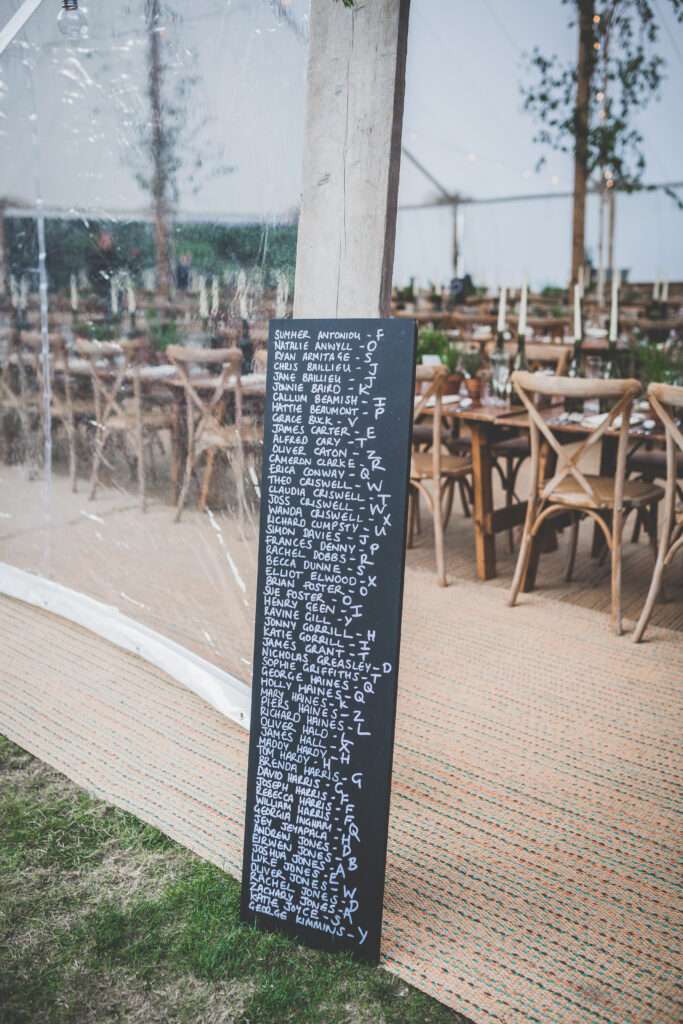 SUMMER ANTONIOU - F
NATALIE ANWYLL - O
RYAN ARMITAGE - S
CHRIS BAILLIEU - J
JANE BAILLIEU - J
JONNIE BAIRD - K
CALLUM BEAMISH - I
HATTIE BEAUMONT - P
GRACE BUCK - V
JAMES CARTER - E
ALFRED CARY - T
OLIVER CATON -
CAMERON CLARKE - Z
ERICA CONWAY - R
THEO CRISWELL - Q
CLAUDIA CRISWELL - W
JOSS CRISWELL - T
WANDA CRISWELL - W
RICHARD CUMPSTY - X
SIMON DAVIES - U
FRANCES DENNY - J
RACHEL DOBBS - P
BECCA DUNNE - R
ELLIOT ELWOOD - S
BRIAN FOSTER - X
SUE FOSTER - O
HENRY GEEN - O
RAVINE GILL - I
JONNY GORRILL - Y
KATIE GORRILL - H
JAMES GRANT - I
NICHOLAS GREASLEY - T
SOPHIE GRIFFITHS - D
GEORGE HAINES - T
HOLLY HAINES - Q
MARY HAINES - Q
PIERS HAINES - K
RICHARD HAINES - Z
OLIVER HALD - L
JAMES HALL - L
MADDY HARDY - X
TOM HARDY - H
BRENDA HARRIS - H
DAVID HARRIS - G
JOSEPH HARRIS - G
REBECCA HARRIS - F
WILLIAM HARRIS - F
GEORGIA INGHAM - F
JEY JEYAPALA - Q
ANDREW JONES - H
EIRWEN JONES - D
JOSHUA JONES - B
LUKE JONES - A
OLIVER JONES - E
RACHEL JONES - W
ZACHARY JONES - D
KATIE JOYCE - A
GEORGE KIMMINS - Y